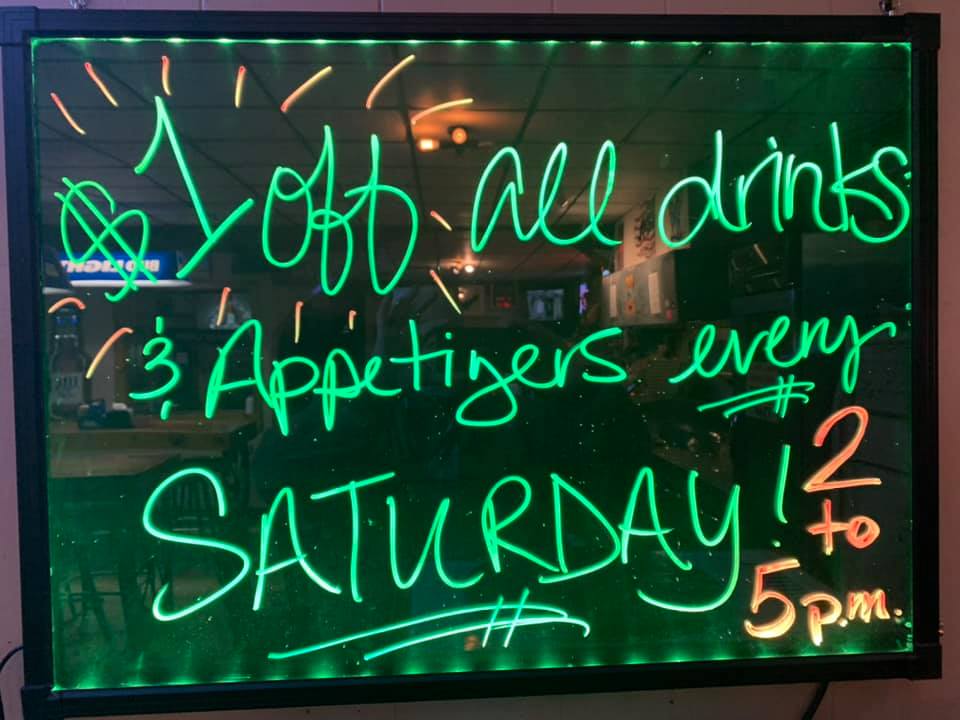 $1 Off all drinks
& Appetizers every
SATURDAY! 2
to
5 p.m.